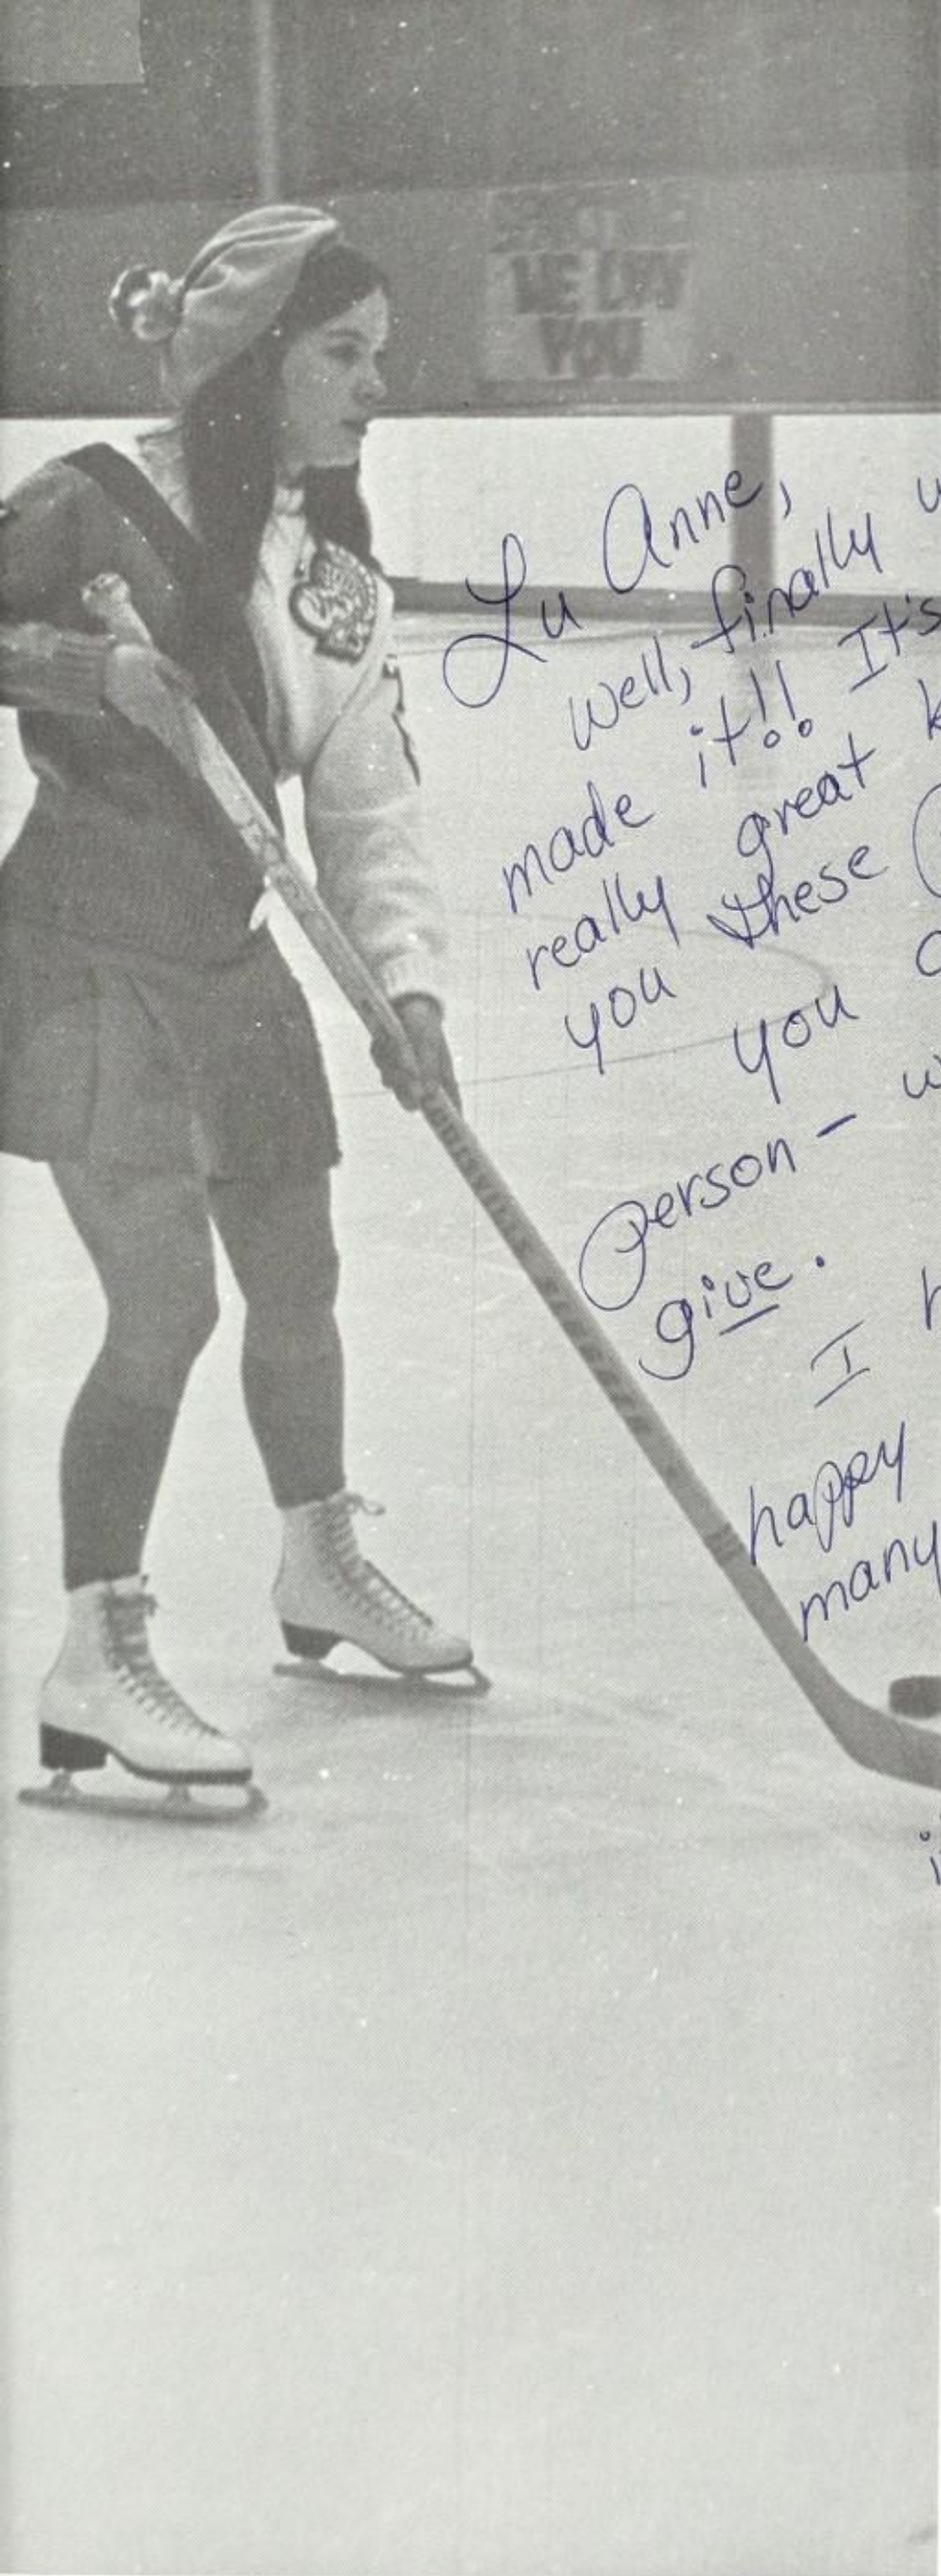 WE LUV
YOU
Lu Anne,
Well, finally
made it!! It's
really great
you these
you
person -
give.
I
happy
many